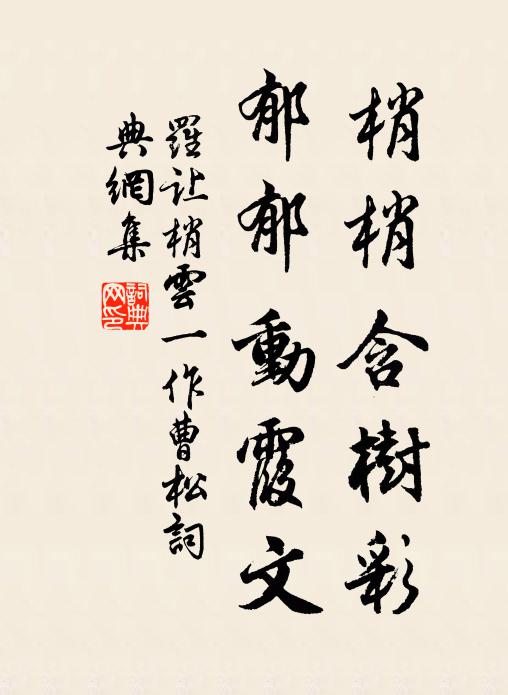 梢梢含樹彩
郁郁動霞文
羅让梢雲一作曹松詞
典網集
詞典
网印